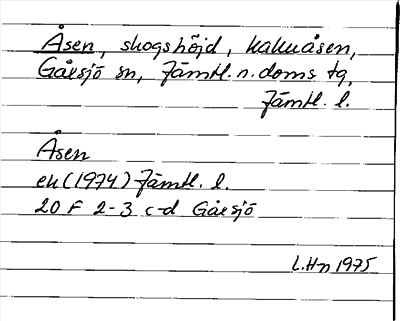 Åsen, skogshöjd, Kalkuåsen,
Gåxsjö sn, Jämtl. n. doms tg,
Jämtl. l.
Åsen
ek (1974) Jämtl. l.
20 F 2-3 c-d Gåxsjö
L.Hn 1975